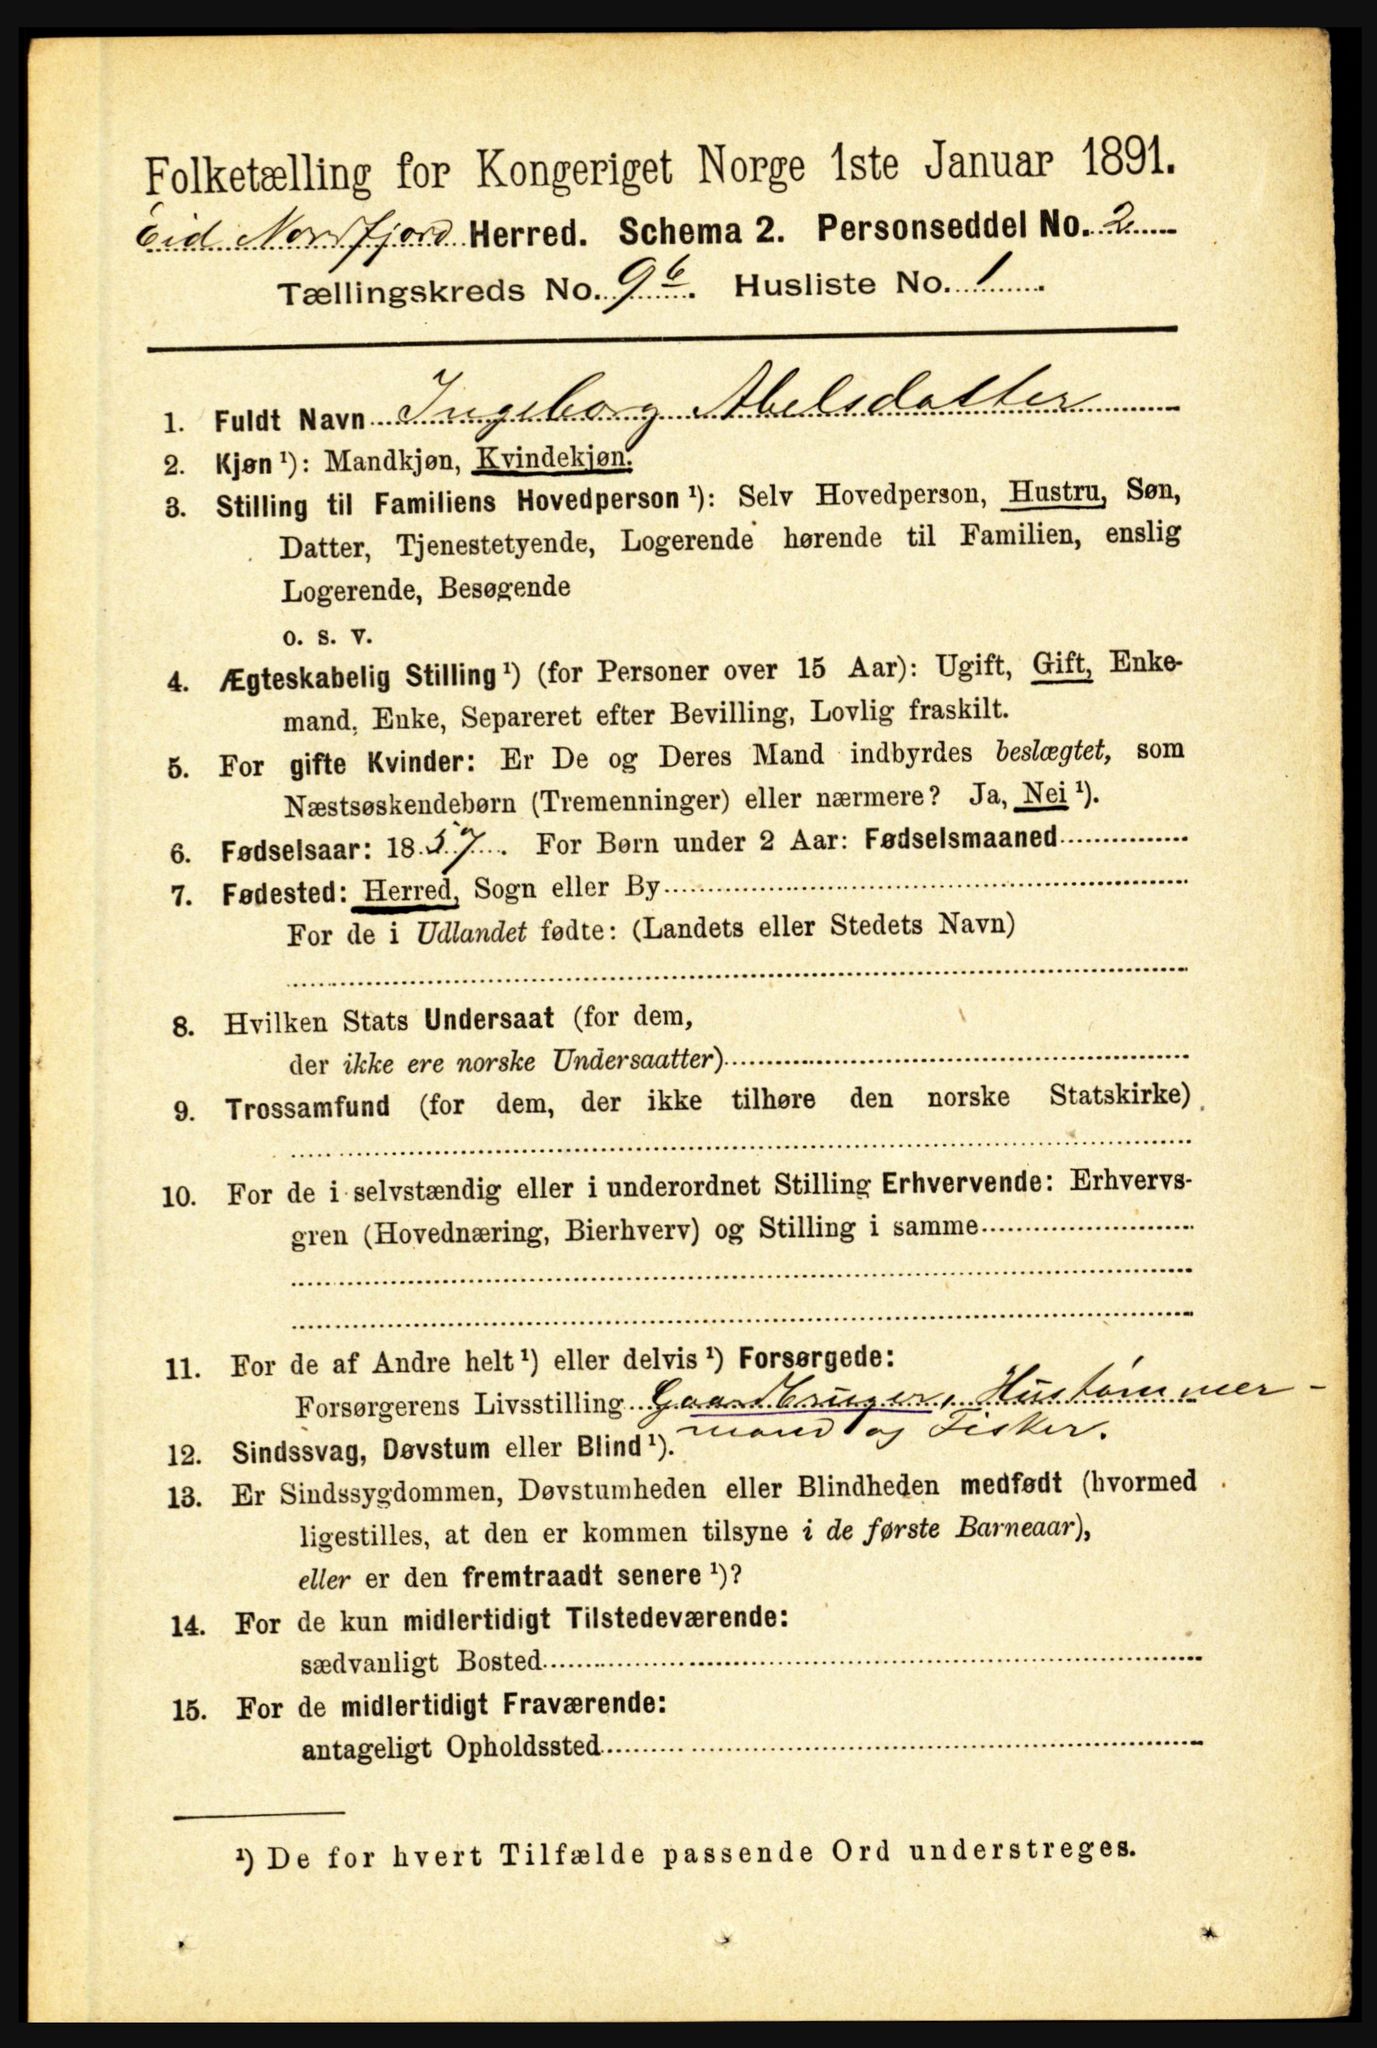 Folketælling for Kongeriget Norge 1ste Januar 1891.
Eid Nordfjord Herred. Schema 2. Personseddel No. 2
Tællingskreds No. 9b. Husliste No. 1.
1. Fuldt Navn Ingeborg Abelsdatter
2. Kjøn ¹): Mandkjøn, Kvindekjøn.
3. Stilling til Familiens Hovedperson ¹): Selv Hovedperson, Hustru, Søn,
Datter, Tjenestetyende, Logerende hørende til Familien, enslig
Logerende, Besøgende
o. s. v.
4. Ægteskabelig Stilling ¹) (for Personer over 15 Aar): Ugift, Gift, Enke-
mand, Enke, Separeret efter Bevilling, Lovlig fraskilt.
5. For gifte Kvinder: Er De og Deres Mand indbyrdes beslægtet, som
Næstsøskendebørn (Tremenninger) eller nærmere? Ja, Nei ¹).
6. Fødselsaar: 1857. For Børn under 2 Aar: Fødselsmaaned
7. Fødested: Herred, Sogn eller By
For de i Udlandet fødte: (Landets eller Stedets Navn)
8. Hvilken Stats Undersaat (for dem,
der ikke ere norske Undersaatter)
9. Trossamfund (for dem, der ikke tilhøre den norske Statskirke)
10. For de i selvstændig eller i underordnet Stilling Erhvervende: Erhvervs-
gren (Hovednæring, Bierhverv) og Stilling i samme
11. For de af Andre helt ¹) eller delvis ¹) Forsørgede:
Forsørgerens Livsstilling Gaardbruger, Hustømmer-
mand og Fisker.
12. Sindssvag, Døvstum eller Blind ¹).
13. Er Sindssygdommen, Døvstumheden eller Blindheden medfødt (hvormed
ligestilles, at den er kommen tilsyne i de første Barneaar),
eller er den fremtraadt senere ¹)?
14. For de kun midlertidigt Tilstedeværende:
sædvanligt Bosted
15. For de midlertidigt Fraværende:
antageligt Opholdssted
¹) De for hvert Tilfælde passende Ord understreges.